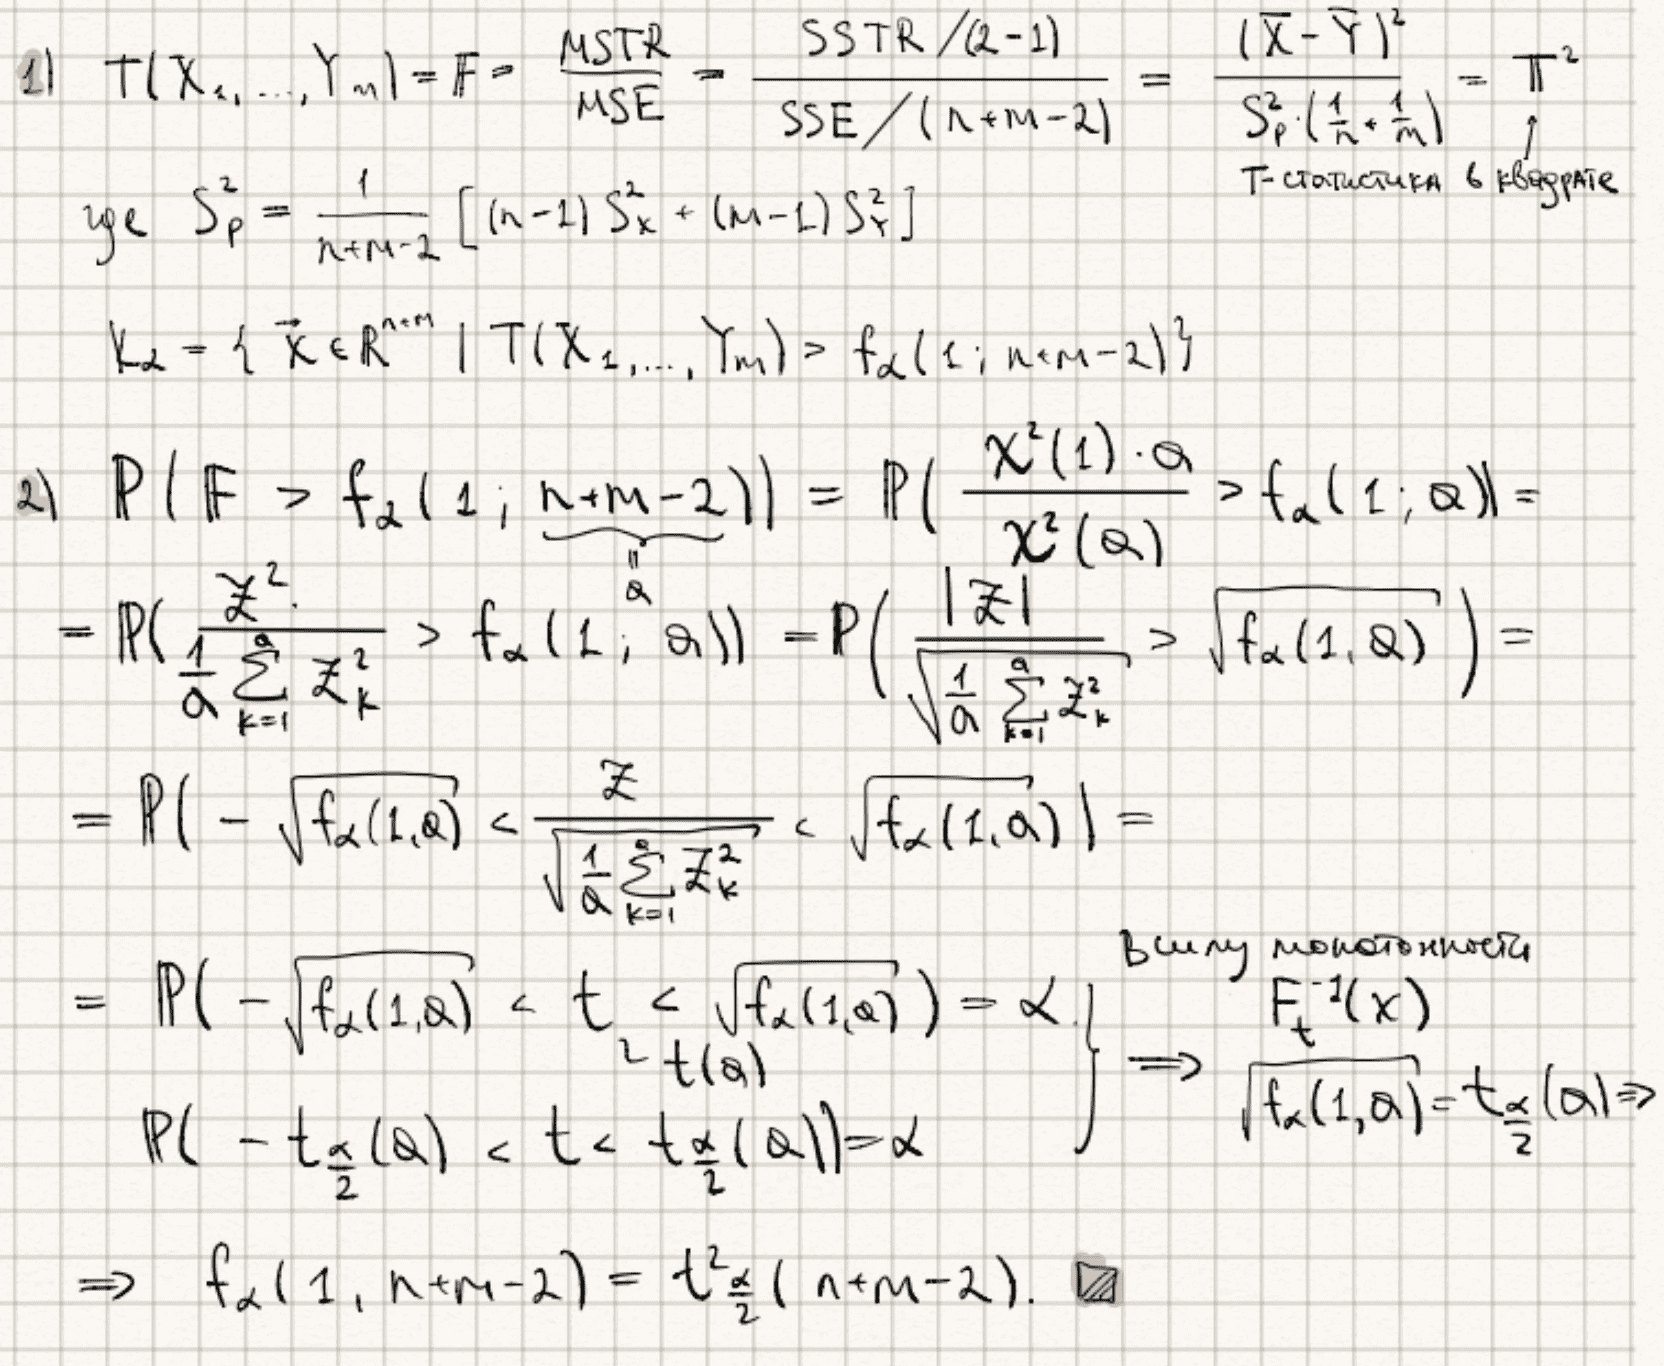 1) T(X₁,...,Yₘ) = F = MSTR/MSE = (SSTR/(2-1))/(SSE/(n+m-2)) = (X̄-Ȳ)²/(S²ₚ·(1/n+1/m)) = T²
↑
T-статистика в квадрате
где S²ₚ = 1/(n+m-2) [(n-1)S²ₓ + (m-1)S²_Y]
K_α = { x⃗ ∈ Rⁿ⁺ᵐ | T(X₁,...,Yₘ) > f_α(1; n+m-2)}
2) P(F > f_α(1; n+m-2)) = P( (χ²(1)·a)/χ²(a) > f_α(1; a)) =
= a
= P( Z²/((1/a) Σ_{k=1}^{a} Z²_k) > f_α(1; a)) = P( |Z|/√((1/a) Σ_{k=1}^{a} Z²_k) > √f_α(1,a) ) =
= P( -√f_α(1,a) < Z/√((1/a) Σ_{k=1}^{a} Z²_k) < √f_α(1,a) ) =
= P( -√f_α(1,a) < t < √f_α(1,a) ) = α
~ t(a)
P( -t_{α/2}(a) < t < t_{α/2}(a)) = α
} ⟹
В силу монотонности
F_t⁻¹(x)
√f_α(1,a) = t_{α/2}(a) ⟹
⟹ f_α(1, n+m-2) = t²_{α/2}(n+m-2). ▨